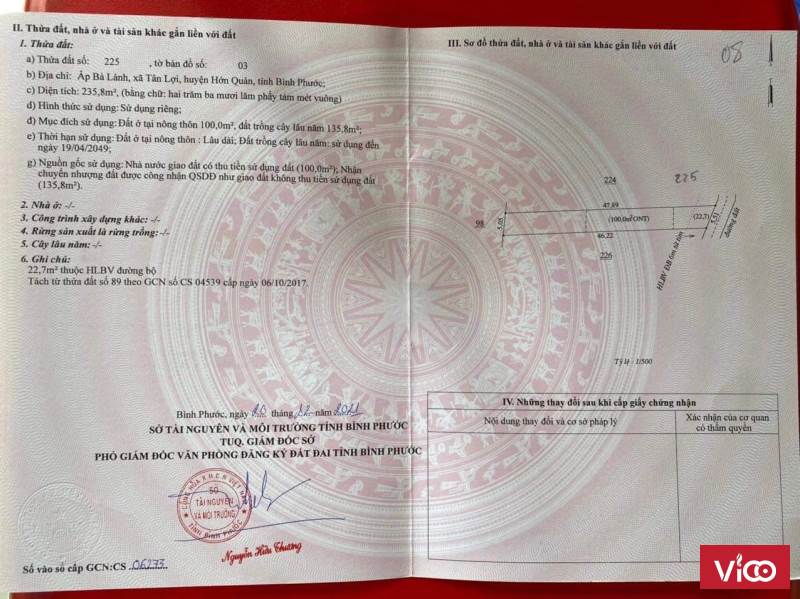 II. Thửa đất, nhà ở và tài sản khác gắn liền với đất
1. Thửa đất:
a) Thửa đất số: 225 , tờ bản đồ số: 03
b) Địa chỉ: Ấp Bà Lành, xã Tân Lợi, huyện Hớn Quản, tỉnh Bình Phước;
c) Diện tích: 235,8m², (bằng chữ: hai trăm ba mươi lăm phẩy tám mét vuông)
d) Hình thức sử dụng: Sử dụng riêng;
đ) Mục đích sử dụng: Đất ở tại nông thôn 100,0m², đất trồng cây lâu năm 135,8m²;
e) Thời hạn sử dụng: Đất ở tại nông thôn : Lâu dài; Đất trồng cây lâu năm: sử dụng đến
ngày 19/04/2049;
g) Nguồn gốc sử dụng: Nhà nước giao đất có thu tiền sử dụng đất (100,0m²); Nhận
chuyển nhượng đất được công nhận QSDĐ như giao đất không thu tiền sử dụng đất
(135,8m²).
2. Nhà ở: -/-
3. Công trình xây dựng khác: -/-
4. Rừng sản xuất là rừng trồng: -/-
5. Cây lâu năm: -/-
6. Ghi chú:
22,7m² thuộc HLBV đường bộ
Tách từ thửa đất số 89 theo GCN số CS 04539 cấp ngày 06/10/2017.
Bình Phước, ngày 20 tháng 12 năm 2021
SỞ TÀI NGUYÊN VÀ MÔI TRƯỜNG TỈNH BÌNH PHƯỚC
TUQ. GIÁM ĐỐC SỞ
PHÓ GIÁM ĐỐC VĂN PHÒNG ĐĂNG KÝ ĐẤT ĐAI TỈNH BÌNH PHƯỚC
CỘNG HÒA X.H.C.N VIỆT NAM
SỞ
TÀI NGUYÊN
VÀ MÔI TRƯỜNG
TỈNH BÌNH PHƯỚC
Nguyễn Hữu Thương
Số vào sổ cấp GCN:CS 06273
III. Sơ đồ thửa đất, nhà ở và tài sản khác gắn liền với đất
08
224
225
47,89
98
5,05
(100,0m²ONT)
(22,7)
5,51
đường đất
46,22
226
HLBV ĐB 6m từ tim
Tỷ lệ - 1/500
IV. Những thay đổi sau khi cấp giấy chứng nhận
Nội dung thay đổi và cơ sở pháp lý
Xác nhận của cơ quan
có thẩm quyền
ViCO